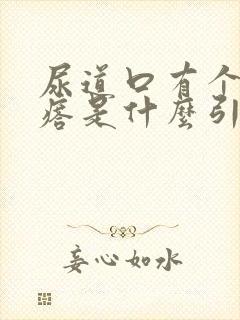 尿道口有个
痞是什麼引
妄心如水